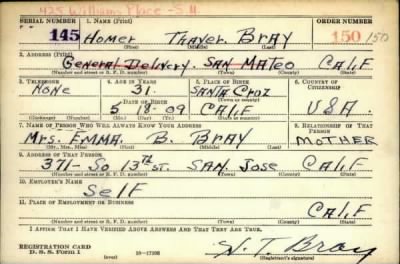 425 William Place - S.M.
SERIAL NUMBER 1. NAME (Print) ORDER NUMBER
145 HOMER THAYER BRAY 150 150
(First) (Middle) (Last)
2. ADDRESS (Print)
General Delivery. SAN MATEO CALIF
(Number and street or R. F. D. number) (Town) (County) (State)
3. TELEPHONE 4. AGE IN YEARS 5. PLACE OF BIRTH 6. COUNTRY OF CITIZENSHIP
NONE 31. SANTA CRUZ
DATE OF BIRTH (Town or county)
5 18 09 CALIF USA.
(Mo.) (Day) (Yr.) (State or country)
7. NAME OF PERSON WHO WILL ALWAYS KNOW YOUR ADDRESS 8. RELATIONSHIP OF THAT PERSON
Mrs. EMMA B. BRAY MOTHER
(Mr., Mrs., Miss) (First) (Middle) (Last)
9. ADDRESS OF THAT PERSON
371- So 13th ST. SAN JOSE CALIF
(Number and street or R. F. D. number) (Town) (County) (State)
10. EMPLOYER'S NAME
SELF
11. PLACE OF EMPLOYMENT OR BUSINESS
CALIF
(Number and street or R. F. D. number) (Town) (County) (State)
I AFFIRM THAT I HAVE VERIFIED ABOVE ANSWERS AND THAT THEY ARE TRUE.
REGISTRATION CARD
D. S. S. Form 1 (over) 16—17105 H. T. Bray
(Registrant's signature)